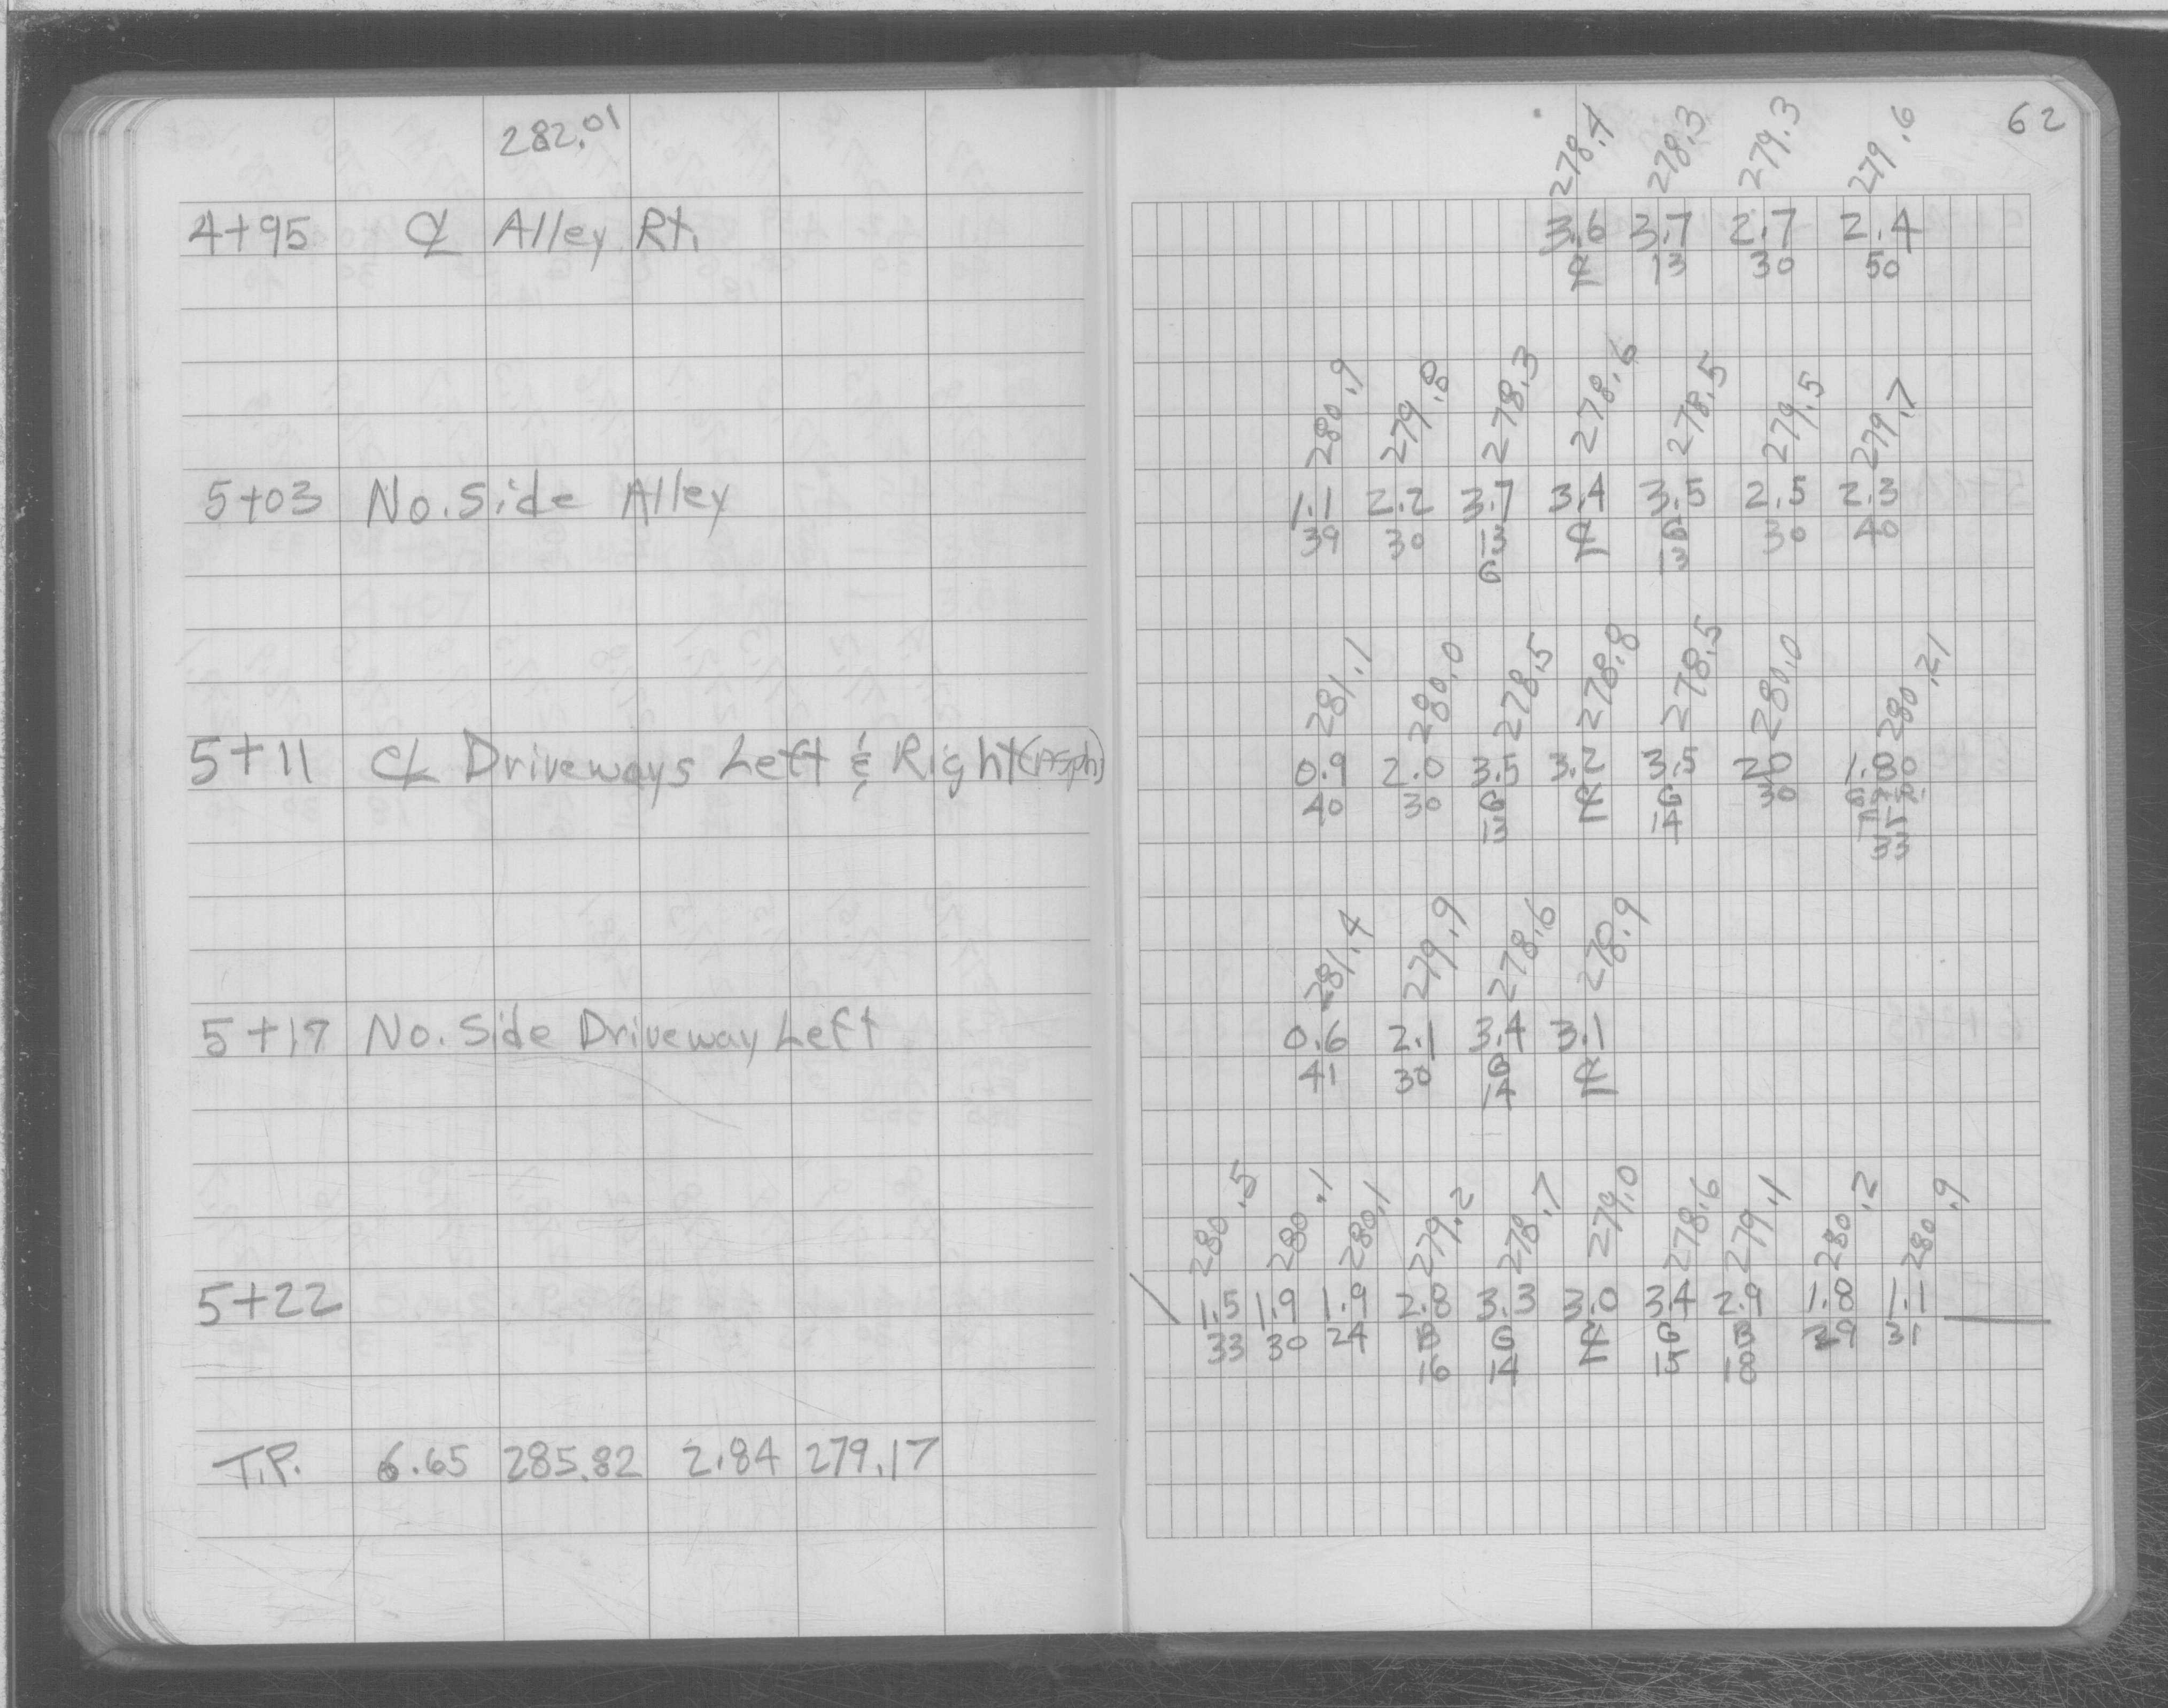 282.01
4+95 ℄ Alley Rt.
5+03 No. Side Alley
5+11 ℄ Driveways Left & Right (Asph)
5+17 No. Side Driveway Left
5+22
T.P. 6.65 285.82 2.84 279.17
62
278.4 278.3 279.3 279.6
3.6 3.7 2.7 2.4
℄ 13 30 50
280.9 279.8 278.3 278.6 278.5 279.5 279.7
1.1 2.2 3.7 3.4 3.5 2.5 2.3
39 30 13 ℄ G 30 40
G 13
281.1 280.0 278.5 278.8 278.5 280.0 280.21
0.9 2.0 3.5 3.2 3.5 2.0 1.80
40 30 G ℄ G 30
13 14
33
281.4 279.9 278.6 278.9
0.6 2.1 3.4 3.1
41 30 G ℄
14
280.5 280.1 280.1 279.2 278.7 279.0 278.6 279.1 280.2 280.9
1.5 1.9 1.9 2.8 3.3 3.0 3.4 2.9 1.8 1.1
33 30 24 B G ℄ G B 29 31
16 14 15 18